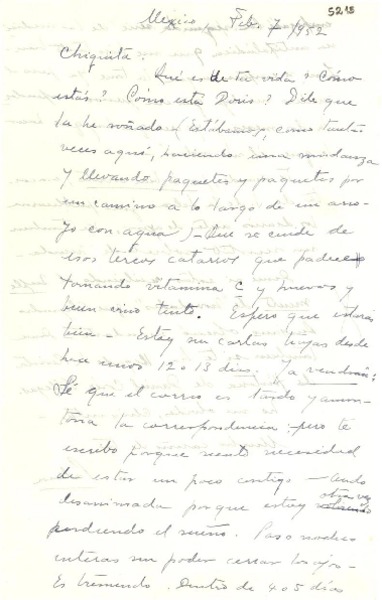 5218
Mexico Feb. 7 1952
Chiquita:
Qué es de tu vida? Cómo
estás? Cómo está Doris? Dile que
la he soñado (Estábamos, como tantas
veces aquí, haciendo una mudanza
y llevando paquetes y paquetes por
un camino a lo largo de un arro-
yo con agua) - Que se cuide de
esos tercos catarros que padece
tomando vitamina C y huevos y
buen vino tinto. Espero que estarás
bien - Estoy sin cartas tuyas desde
hace unos 12 o 13 días. Ya vendrán!
Sé que el correo es tardo y amon-
tona la correspondencia: pero te
escribo porque siento necesidad
de estar un poco contigo - Ando
desanimada porque estoy otra vez
perdiendo el sueño. Paso noches
enteras sin poder cerrar los ojos -
Es tremendo. Dentro de 4 o 5 días